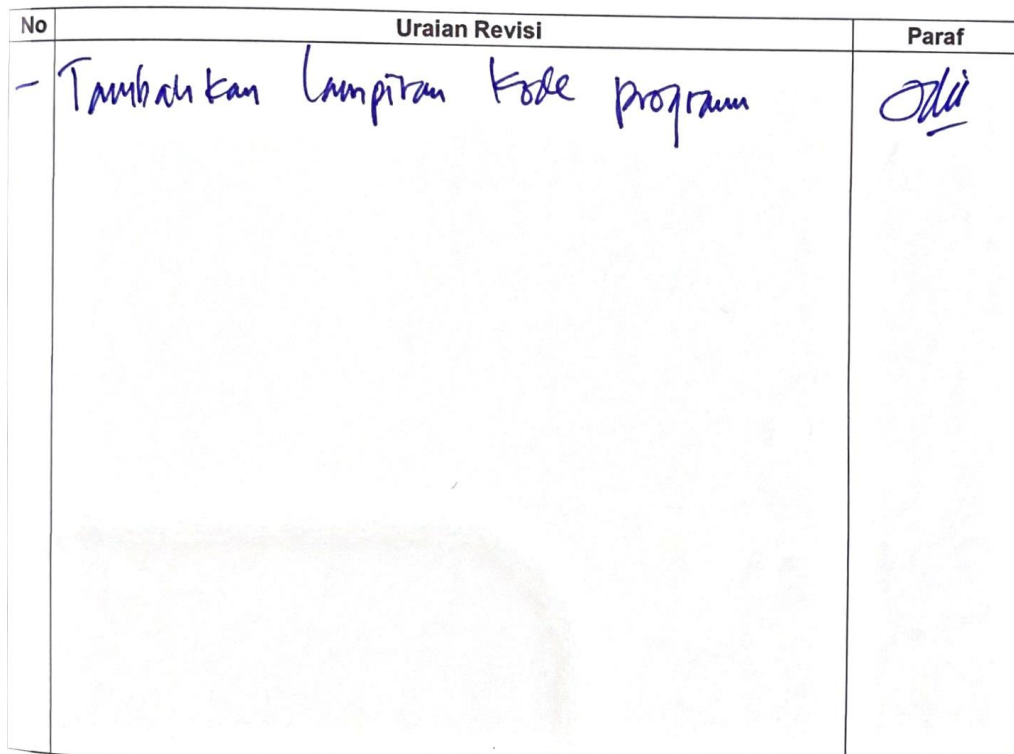 No Uraian Revisi Paraf
- Tambahkan lampiran kode program